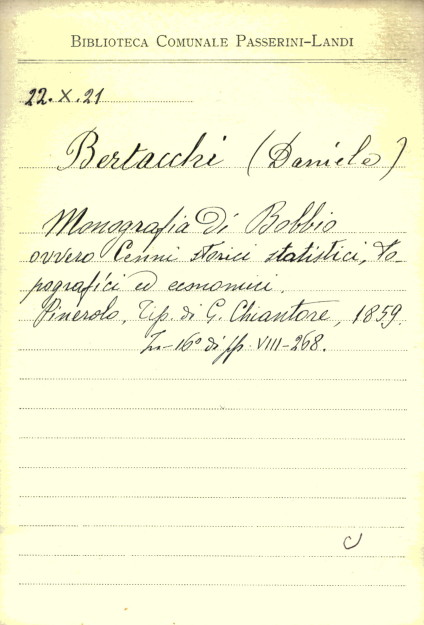 BIBLIOTECA COMUNALE PASSERINI-LANDI
22.X.21
Bertacchi (Daniele)
Monografia di Bobbio
ovvero Cenni storici statistici, to-
pografici ed economici.
Pinerolo, Tip. di G. Chiantore, 1859.
In-16º di pp. VIII-268.